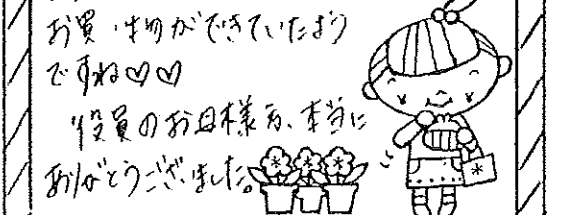 お買い物ができていたよう
ですね♡♡
役員のお母様方、本当に
ありがとうございました。